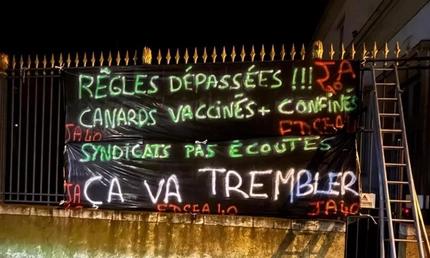 RÊGLES DÉPASSÉES !!! JA 40
CANARDS VACCINÉS + CONFINÉS
JA40 FDSEA 40
SYNDICATS PÄS ÉCOUTÉS
ÇA VA TREMBLER
JA
FDSEA 40 JA40